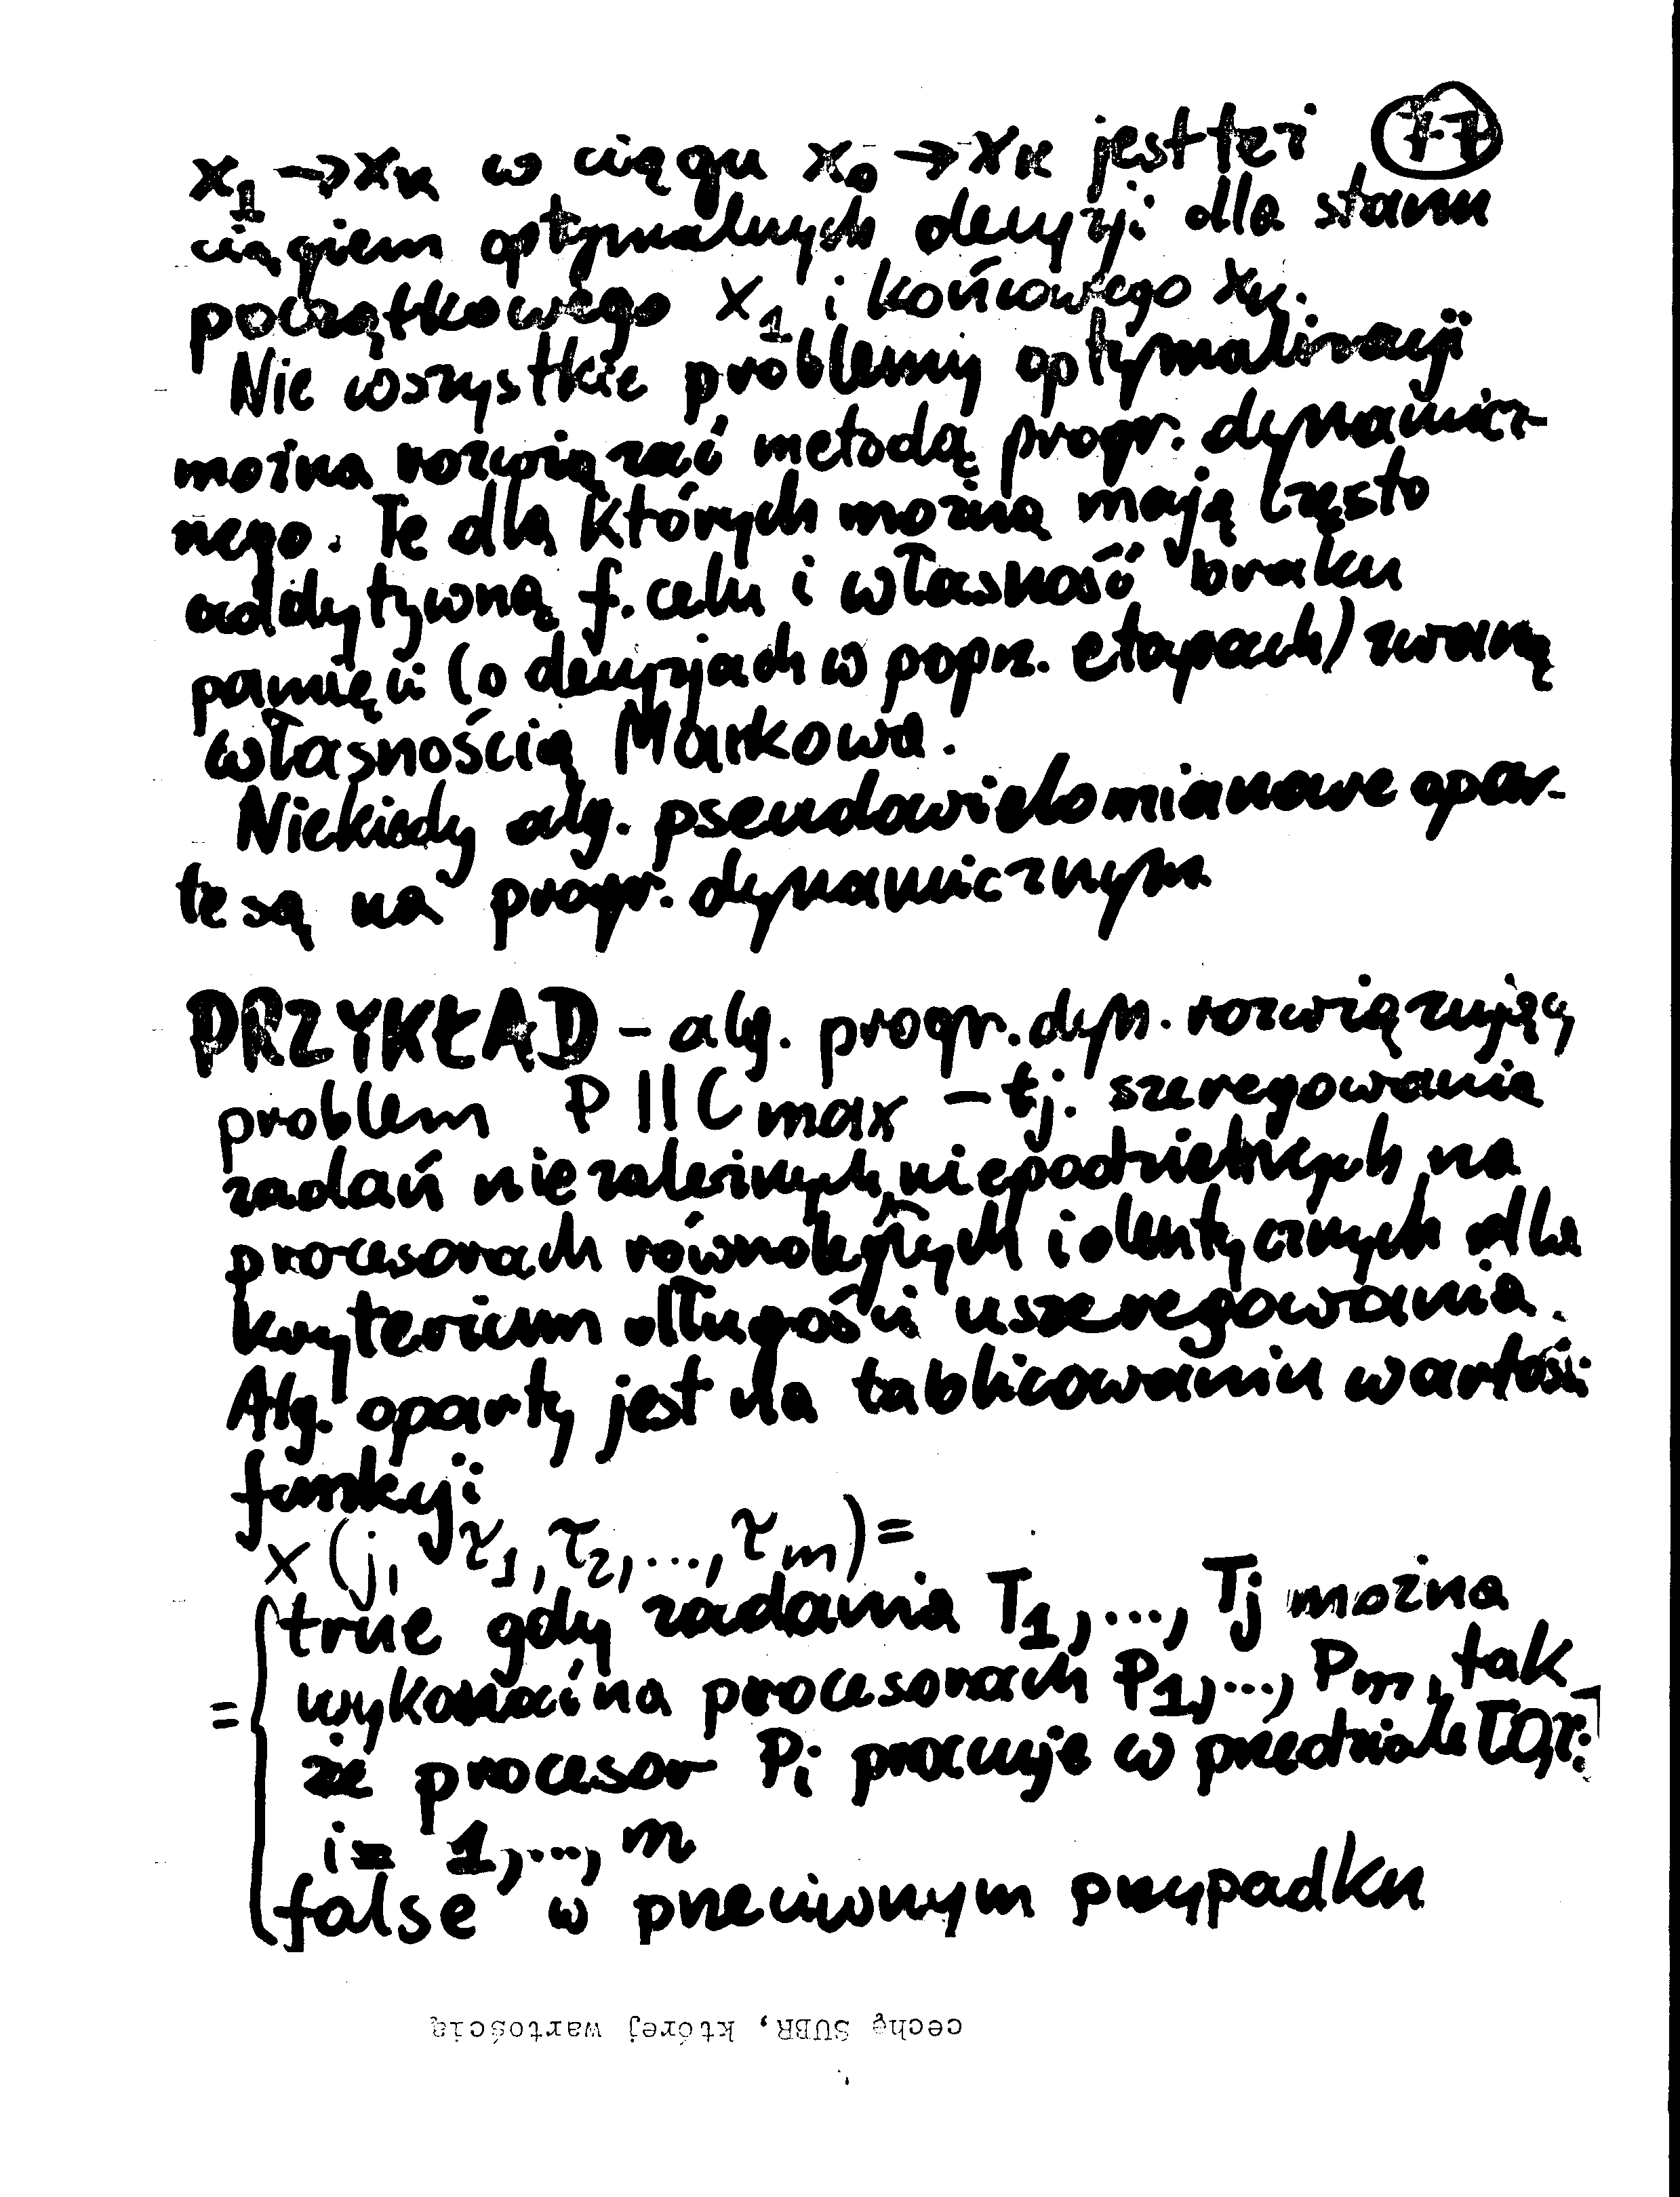 7-7
x₁ → xₖ w ciągu x₀ → xₖ jest też
ciągiem optymalnych decyzji dla stanu
początkowego x₁ i końcowego xₖ.
Nie wszystkie problemy optymalizacji
można rozwiązać metodą progr. dynamicz-
nego. Te dla których można mają często
addytywną f. celu i własność braku
pamięci (o decyzjach w poprz. etapach) zwaną
własnością Markowa.
Niekiedy alg. pseudowielomianowe opar-
te są na progr. dynamicznym
PRZYKŁAD - alg. progr. dyn. rozwiązujący
problem P || Cmax - tj. szeregowania
zadań niezależnych, niepodzielnych na
procesorach równoległych identycznych dla
kryterium długości uszeregowania.
Alg. oparty jest na tablicowaniu wartości
funkcji
x (j, τ₁, τ₂, ..., τₘ) =
= { true gdy zadania T₁, ..., Tj można
wykonać na procesorach P₁, ..., Pm, tak
że procesor Pi pracuje w przedziale [0, τi]
i = 1, ..., m
false w przeciwnym przypadku
cechę SUBR, której wartością